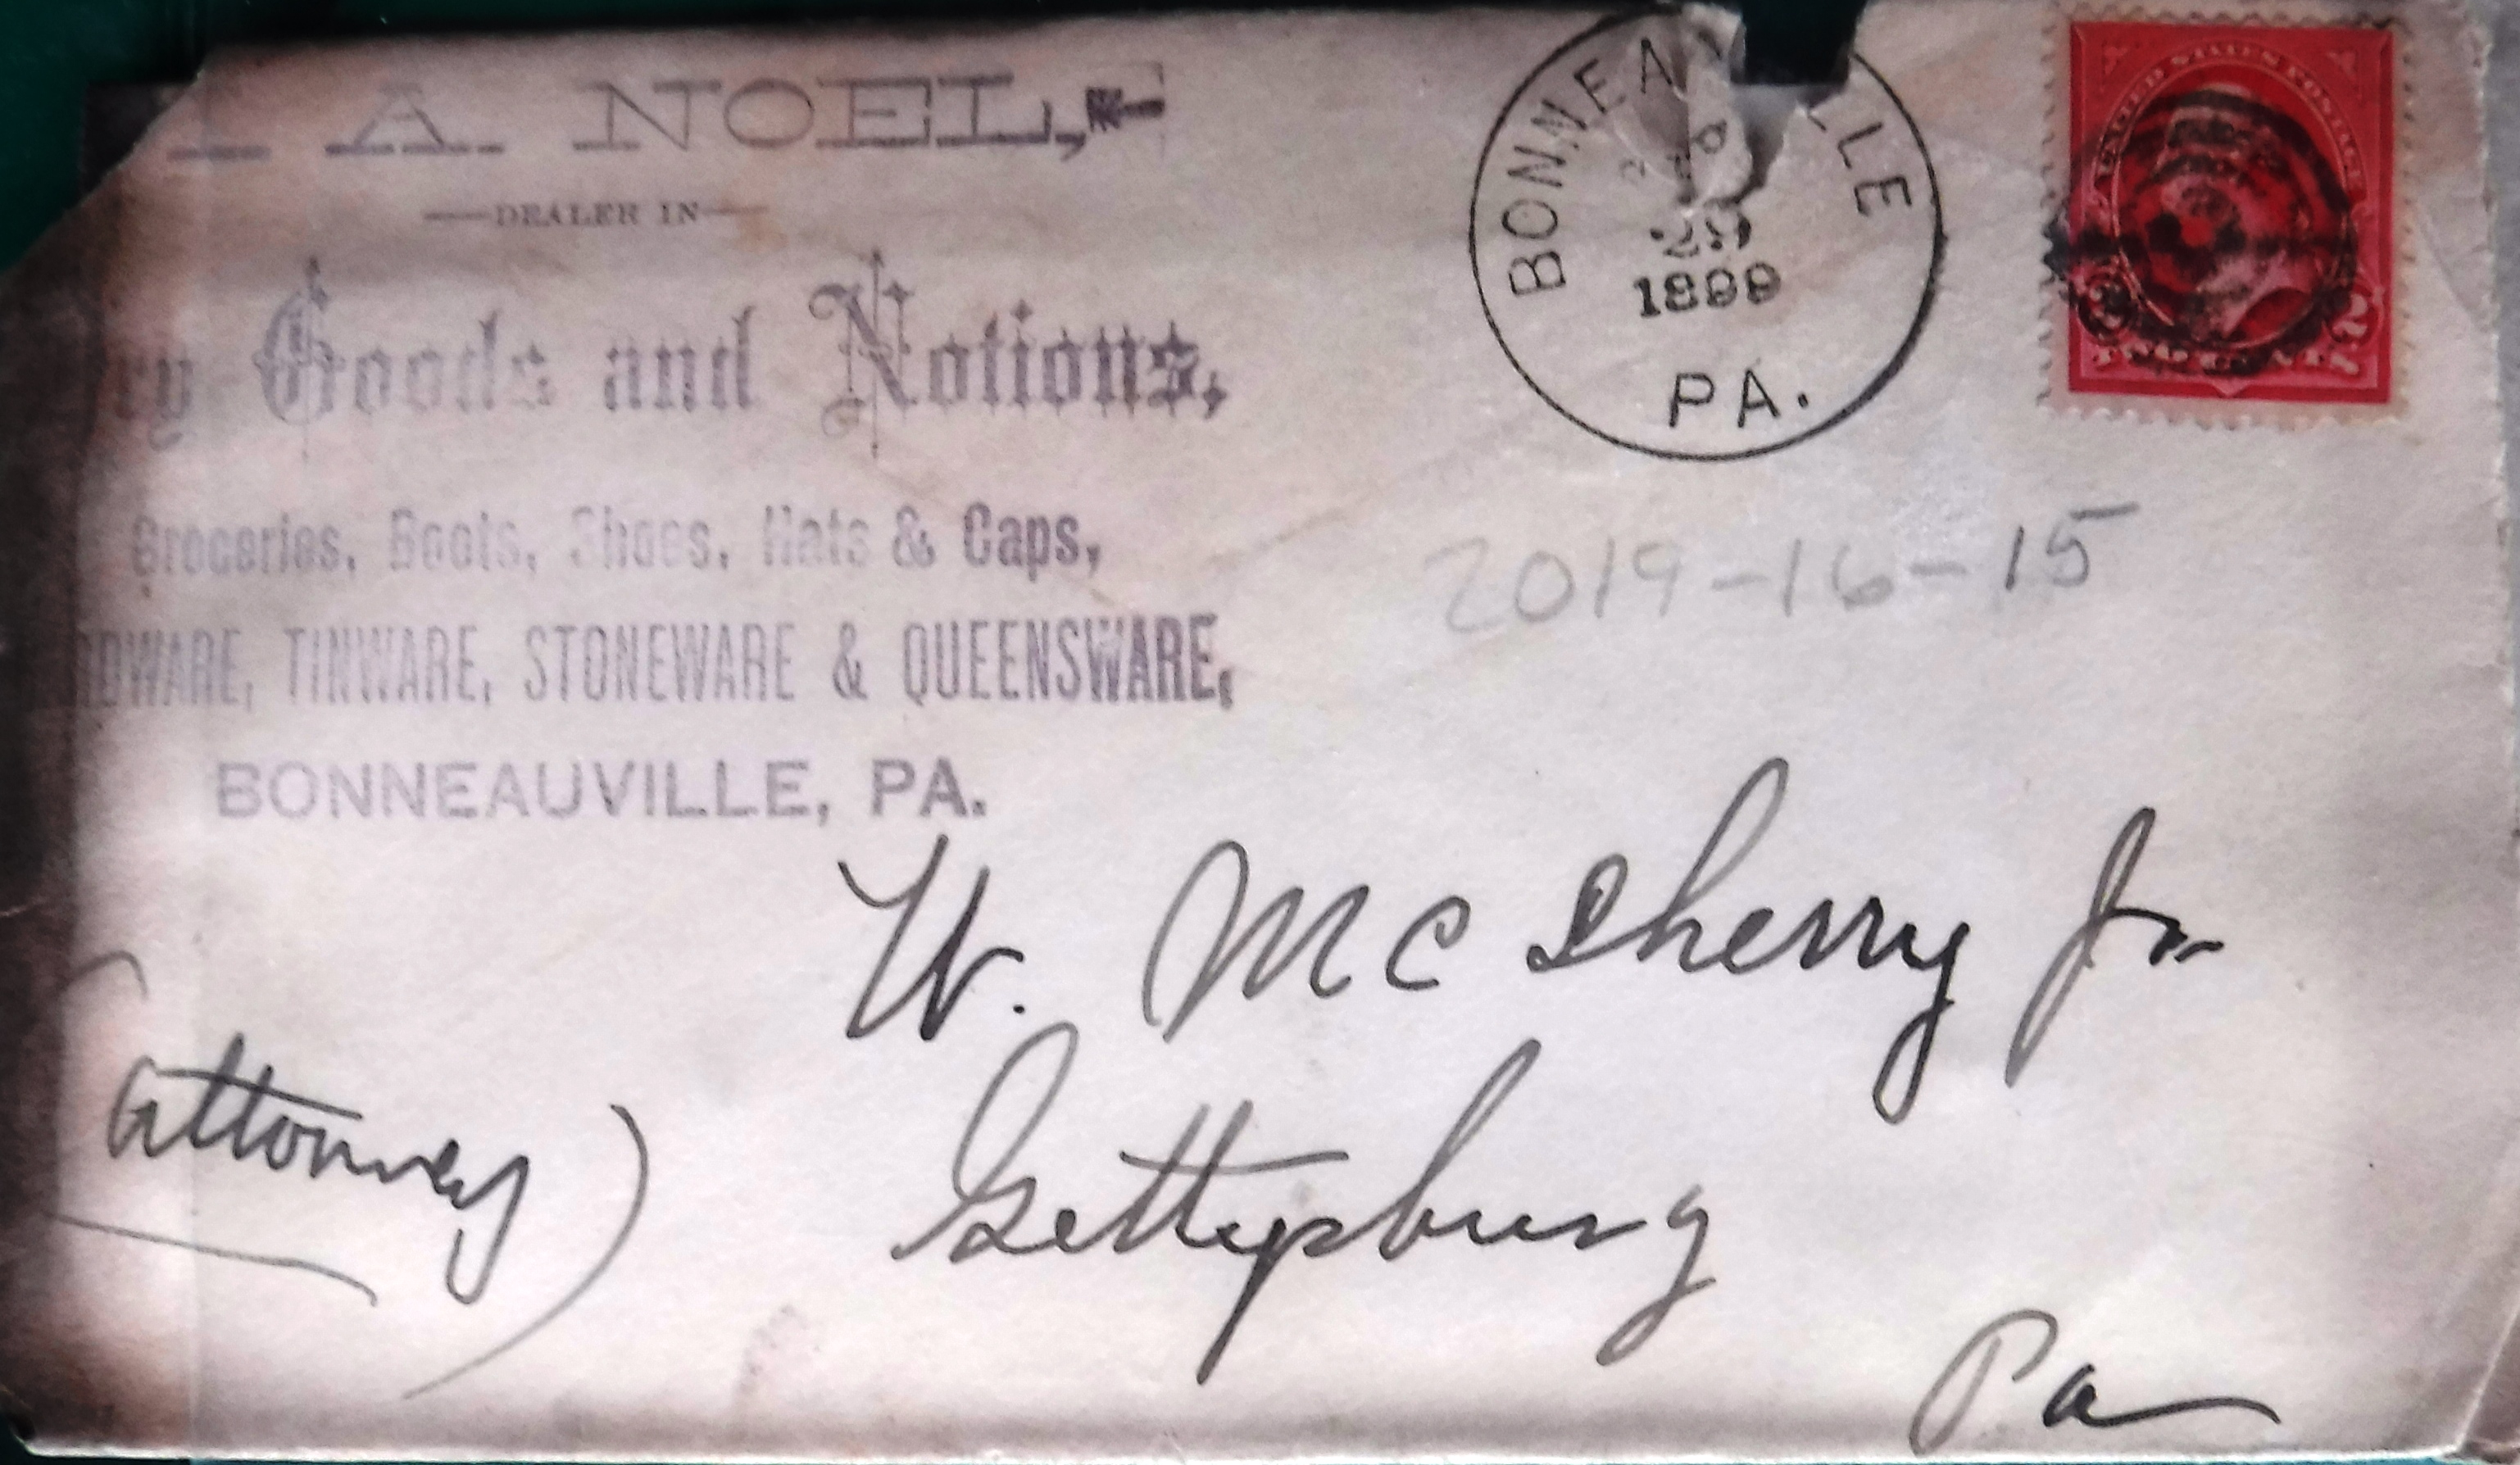 A. NOEL,
DEALER IN
ry Goods and Notions,
Groceries, Boots, Shoes, Hats & Caps,
RDWARE, TINWARE, STONEWARE & QUEENSWARE,
BONNEAUVILLE, PA.
BONNEA LLE
29
1899
PA.
UNITED STATES POSTAGE
2 2
TWO CENTS
2019-16-15
W. McSherry Jr
(attorney)
Gettysburg
Pa